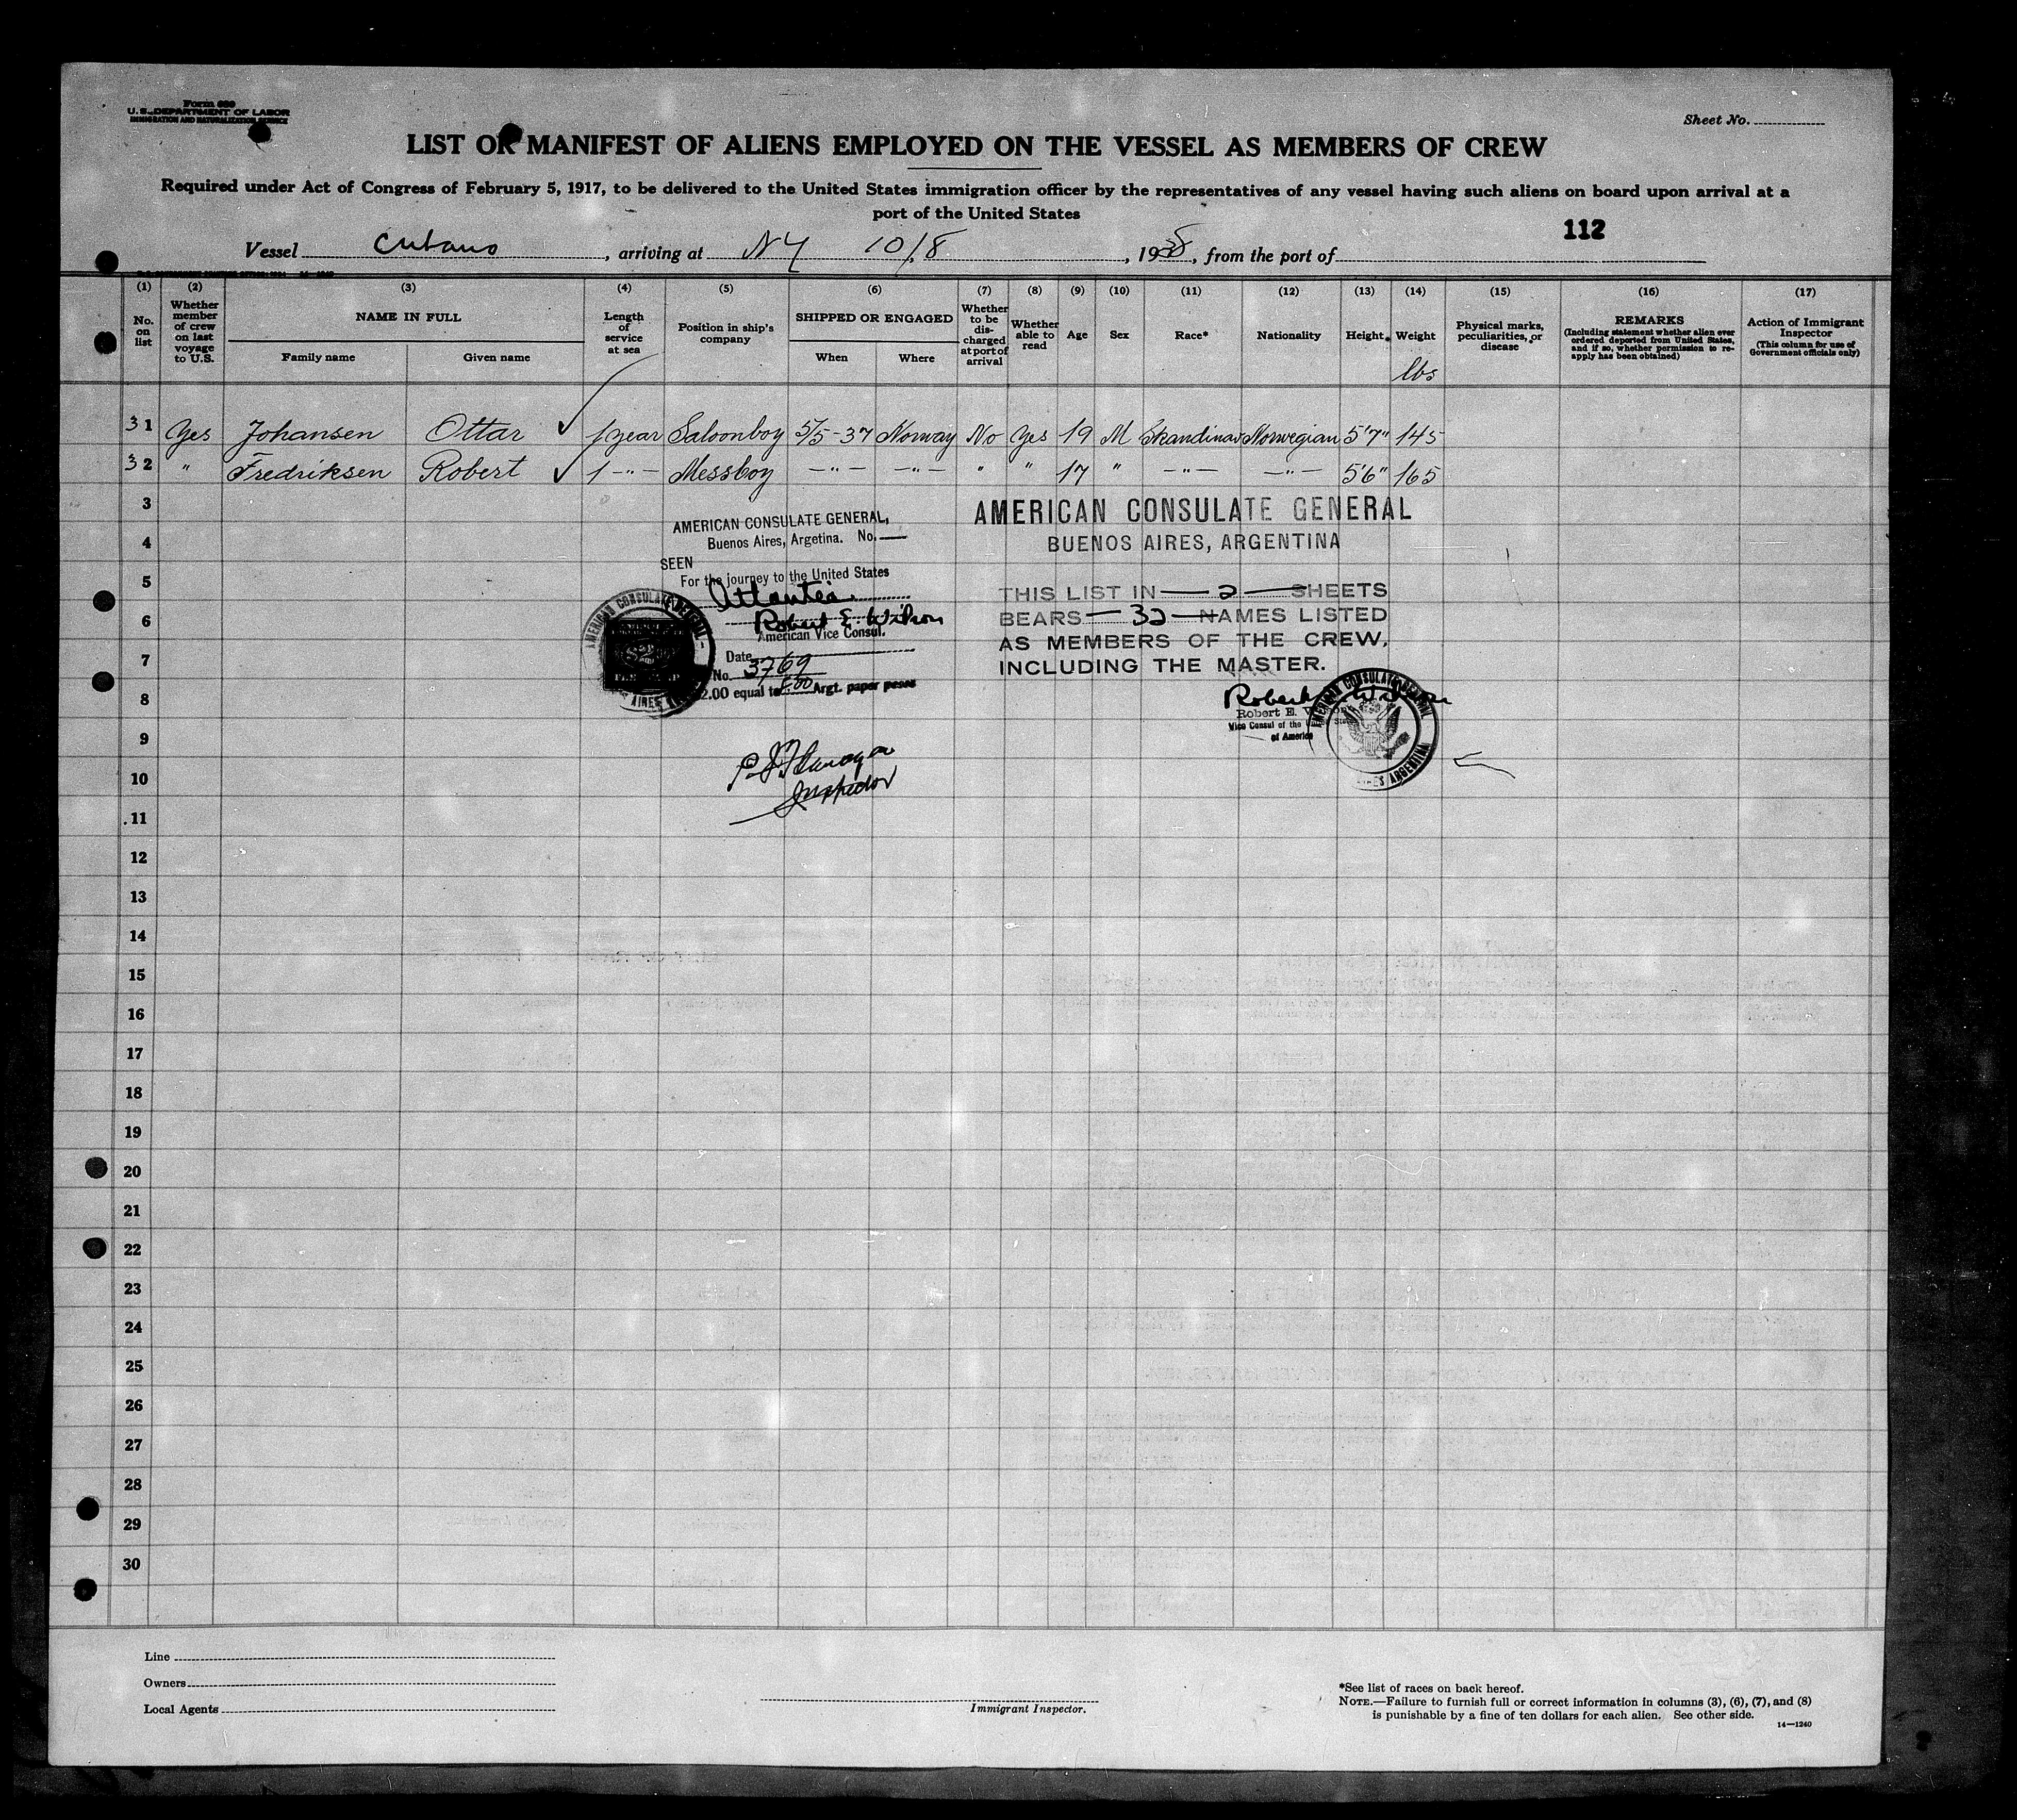 Form 689
U. S. DEPARTMENT OF LABOR
IMMIGRATION AND NATURALIZATION SERVICE
Sheet No.
LIST OR MANIFEST OF ALIENS EMPLOYED ON THE VESSEL AS MEMBERS OF CREW
Required under Act of Congress of February 5, 1917, to be delivered to the United States immigration officer by the representatives of any vessel having such aliens on board upon arrival at a
port of the United States
112
Vessel Cubano, arriving at NY 10/8, 1938, from the port of
(1) (2) (3) (4) (5) (6) (7) (8) (9) (10) (11) (12) (13) (14) (15) (16) (17)
No. on list
Whether member of crew on last voyage to U.S.
NAME IN FULL
Family name Given name
Length of service at sea
Position in ship's company
SHIPPED OR ENGAGED
When Where
Whether to be discharged at port of arrival
Whether able to read
Age
Sex
Race*
Nationality
Height
Weight
lbs
Physical marks, peculiarities, or disease
REMARKS
(Including statement whether alien ever ordered deported from United States, and if so, whether permission to reapply has been obtained)
Action of Immigrant Inspector
(This column for use of Government officials only)
31 Yes Johansen Ottar 1 year Saloonboy 5/5-37 Norway No Yes 19 M Skandinav Norwegian 5'7" 145
32 " Fredriksen Robert 1 -"- Messboy -"- -"- " " 17 " -"- -"- 5'6" 165
3
4
5
6
7
8
9
10
11
12
13
14
15
16
17
18
19
20
21
22
23
24
25
26
27
28
29
30
AMERICAN CONSULATE GENERAL,
Buenos Aires, Argetina. No.
SEEN
For the journey to the United States
Robert E. Wilson
American Vice Consul.
Date
No. 3769
2.00 equal to 8.00 Argt. paper pesos
Inspector
AMERICAN CONSULATE GENERAL
BUENOS AIRES, ARGENTINA
THIS LIST IN — 2 — SHEETS
BEARS — 32 — NAMES LISTED
AS MEMBERS OF THE CREW,
INCLUDING THE MASTER.
Robert E. Wilson
Vice Consul of the United States
of America
Line
Owners
Local Agents
Immigrant Inspector.
*See list of races on back hereof.
NOTE.—Failure to furnish full or correct information in columns (3), (6), (7), and (8)
is punishable by a fine of ten dollars for each alien. See other side.
14—1240